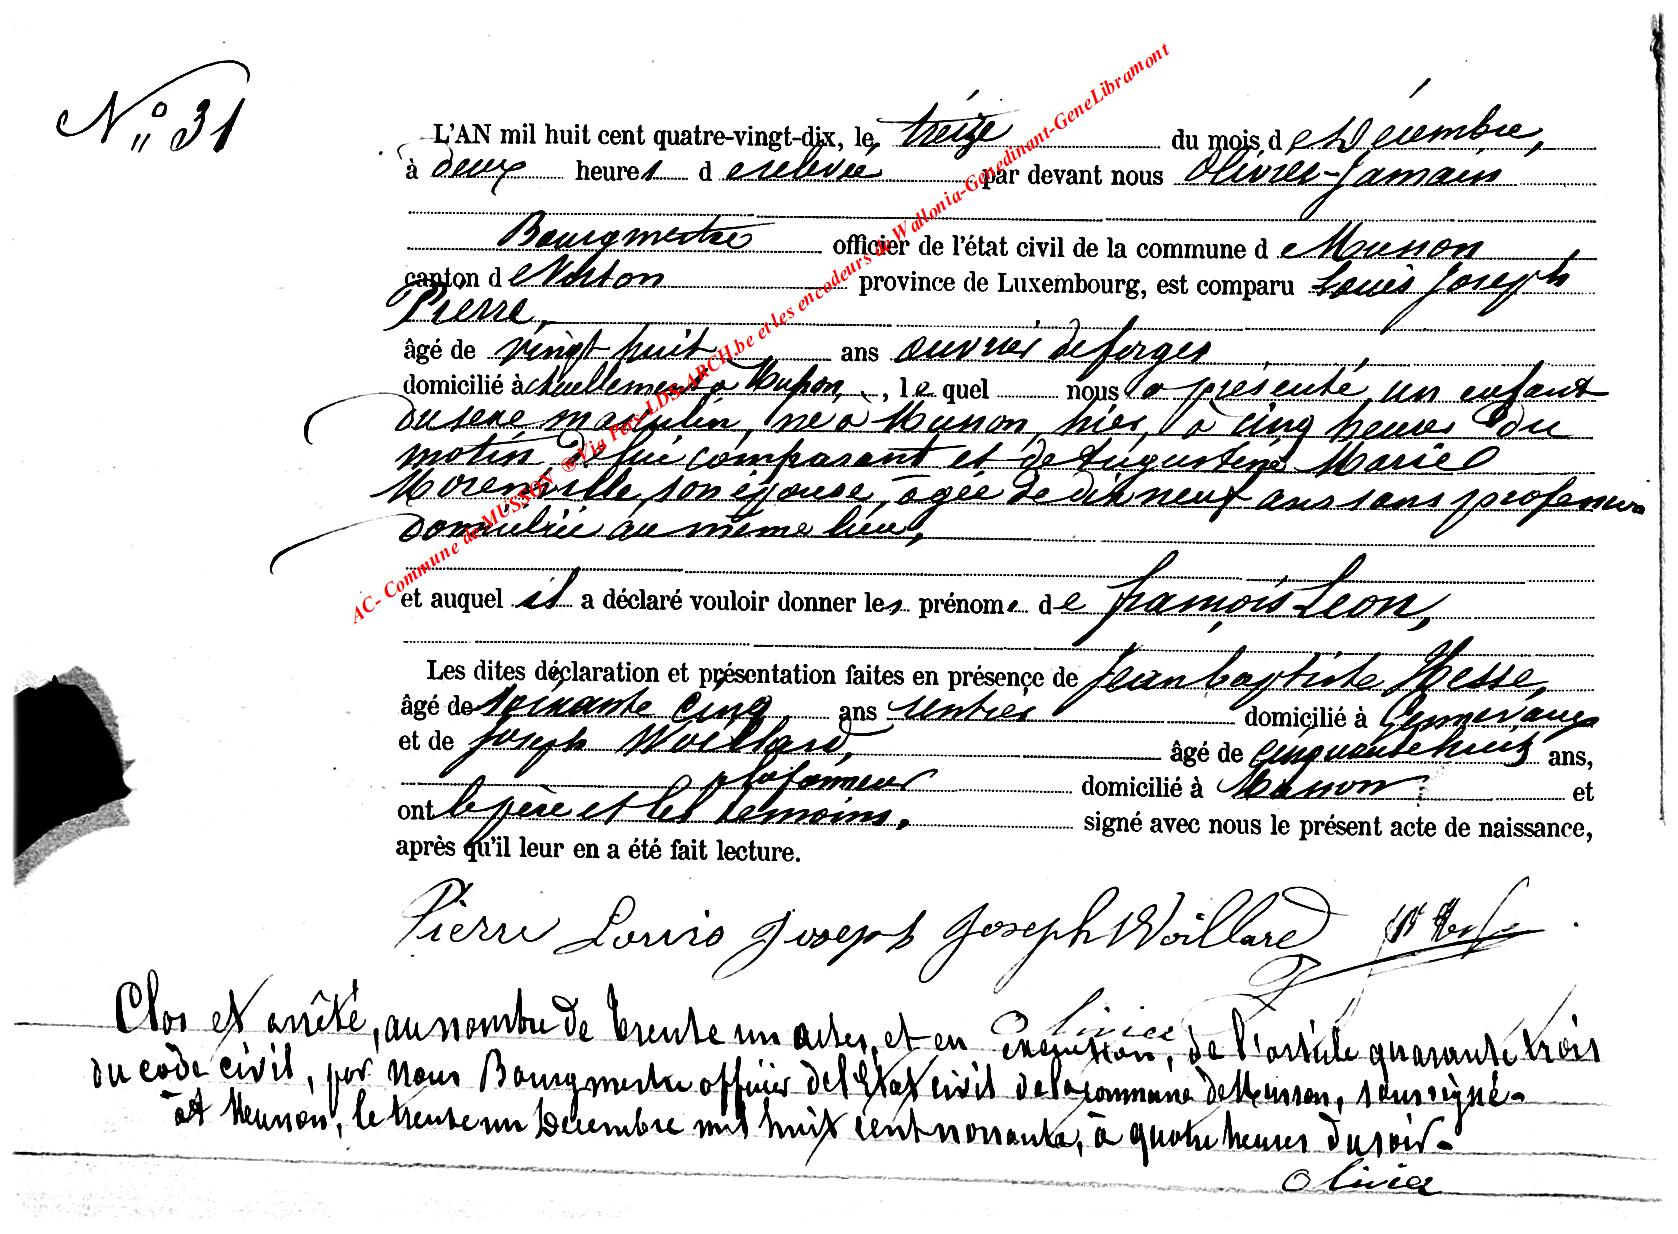 N° 31
L'AN mil huit cent quatre-vingt-dix, le treize du mois de Décembre,
à deux heures de relevée par devant nous Olivier-Jamain
Bourgmestre officier de l'état civil de la commune de Musson
canton de Virton province de Luxembourg, est comparu Louis Joseph
Pierre,
âgé de vingt huit ans ouvrier de forges
domicilié actuellement à Musson, , le quel nous a présenté un enfant
du sexe masculin, né à Musson, hier, à cinq heures du
matin, de lui comparant et de Augustine Marie
son épouse, âgée de dix neuf ans sans profession
domiciliée au même lieu,
et auquel il a déclaré vouloir donner les prénoms de François Léon,
Les dites déclaration et présentation faites en présence de Jean baptiste Hesse,
âgé de soixante cinq ans rentier domicilié à
et de Joseph Woillard, âgé de cinquante huit ans,
plafonneur domicilié à Musson et
ont le père et les témoins, signé avec nous le présent acte de naissance,
après qu'il leur en a été fait lecture.
Pierre Louis Joseph Joseph Woillard
Olivier
Clos et arrêté, au nombre de trente un actes, et en exécution, de l'article quarante trois
du code civil, par nous Bourgmestre officier de l'Etat civil de la commune de Musson, soussigné-
à Musson, le trente un Décembre mil huit cent nonante, à quatre heures du soir-
Olivier
AC- Commune de MUSSON ®Via Pers-LDS-ARCH.be et les encodeurs de Wallonia-Genedinant-GeneLibramont